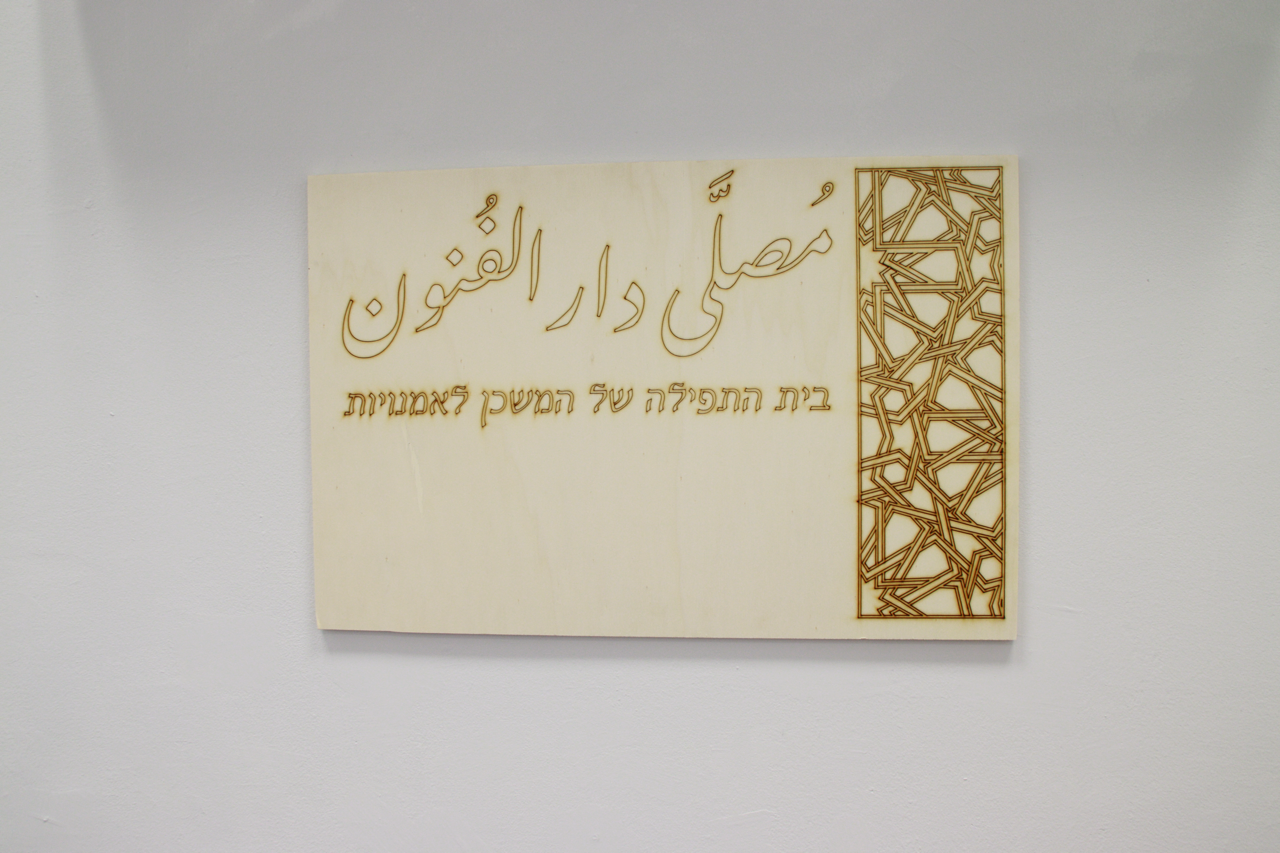 مُصلَّى دار الفُنون
בית התפילה של המשכן לאמנויות